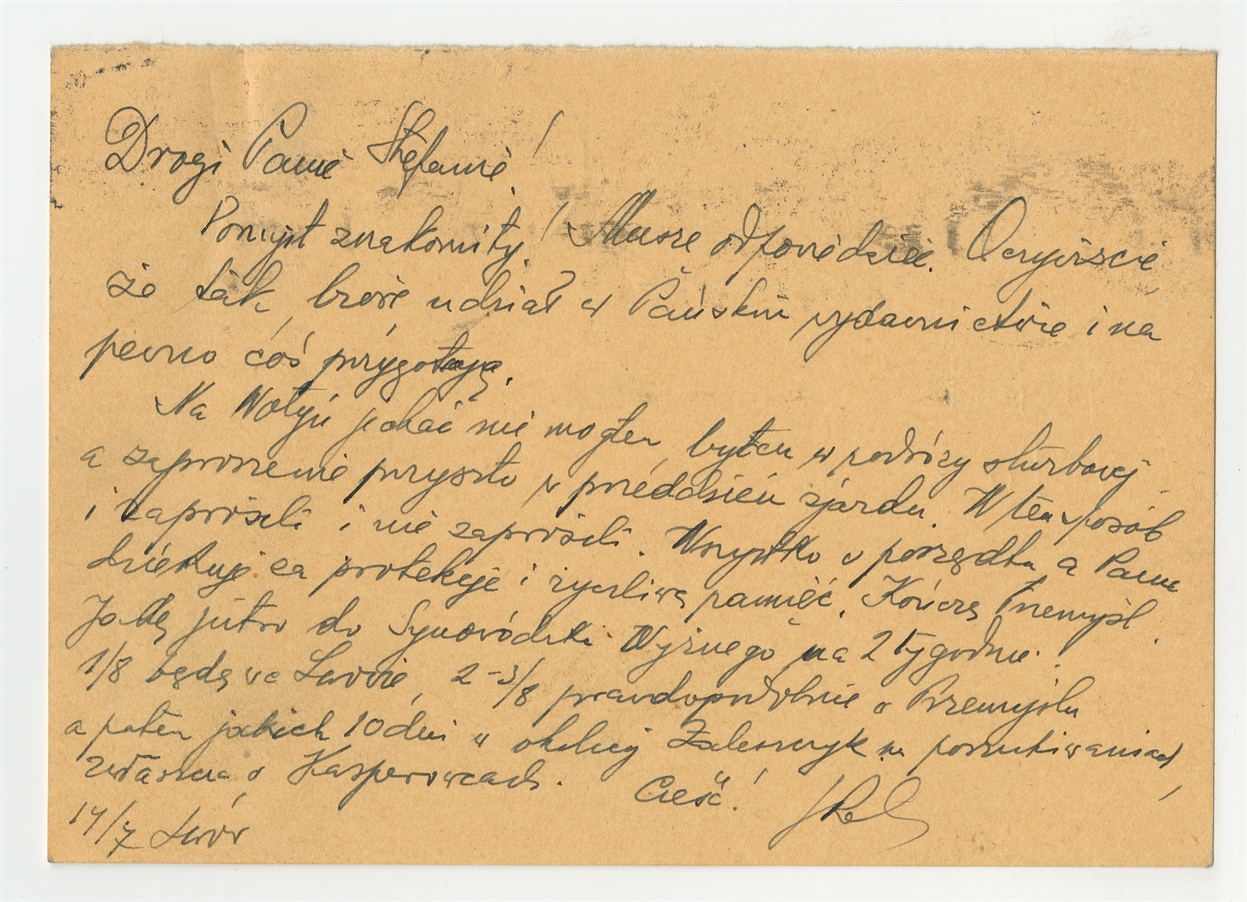 Drogi Panie Stefanie!
Pomysł znakomity! Muszę odpowiedzieć. Oczywiście
że tak, biorę udział w Pańskim wydawnictwie i na
pewno coś przygotuję.
Na Wołyń jechać nie mogłem, byłem w podróży służbowej
a zaproszenie przyszło w przeddzień zjazdu. W ten sposób
i zaprosili i nie zaprosili. Wszystko w porządku a Panu
dziękuję za protekcję i życzliwą pamięć. Kończę Przemyśl.
Jadę jutro do Synowódzka Wyżnego na 2 tygodnie.
1/8 będę we Lwowie, 2-3/8 prawdopodobnie w Przemyślu
a potem jakich 10 dni w okolicy Zaleszczyk na poszukiwaniach,
zwłaszcza w Kasperowcach. Cześć!
17/7 Lwów